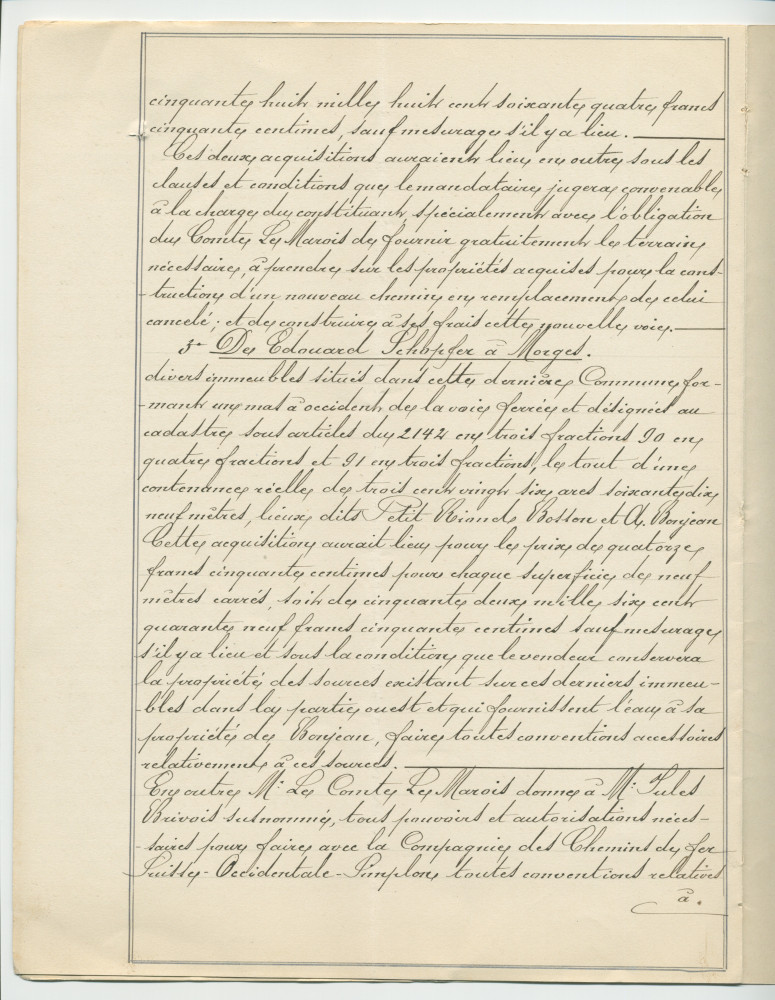 cinquante huit mille huit cent soixante quatre francs
cinquante centimes, sauf mesurage s'il y a lieu.
Ces deux acquisitions auraient lieu en outre sous les
clauses et conditions que le mandataire jugera convenable
à la charge du constituant spécialement avec l'obligation
du Comte Le Marois de fournir gratuitement le terrain
nécessaire, à prendre sur les propriétés acquises pour la cons-
-truction d'un nouveau chemin en remplacement de celui
cancelé; et de construire à ses frais cette nouvelle voie.
3° De Edouard Schopfer à Morges.
divers immeubles situés dans cette dernière Commune for-
-mant un mas à occident de la voie ferrée et désignés au
cadastre sous articles du 2142 en trois fractions 90 en
quatre fractions et 91 en trois fractions, le tout d'une
contenance réelle de trois cent vingt six ares soixante dix
neuf mètres, lieux dits Petit Bionde Bosson et A. Bonjean
Cette acquisition aurait lieu pour le prix de quatorze
francs cinquante centimes pour chaque superficie de neuf
mètres carrés, soit de cinquante deux mille six cent
quarante neuf francs cinquante centimes sauf mesurage
s'il y a lieu et sous la condition que le vendeur conservera
la propriété des sources existant sur ces derniers immeu-
-bles dans la partie ouest et qui fournissent l'eau à sa
propriété de Bonjean, faire toutes conventions accessoires
relativement à ces sources.
En outre Mr. Le Comte Le Marois donne à Mr. Jules
Brivois susnommé, tous pouvoirs et autorisations néces-
-saires pour faire avec la Compagnie des Chemins de fer
Suisse-Occidentale-Simplon toutes conventions relatives
à.